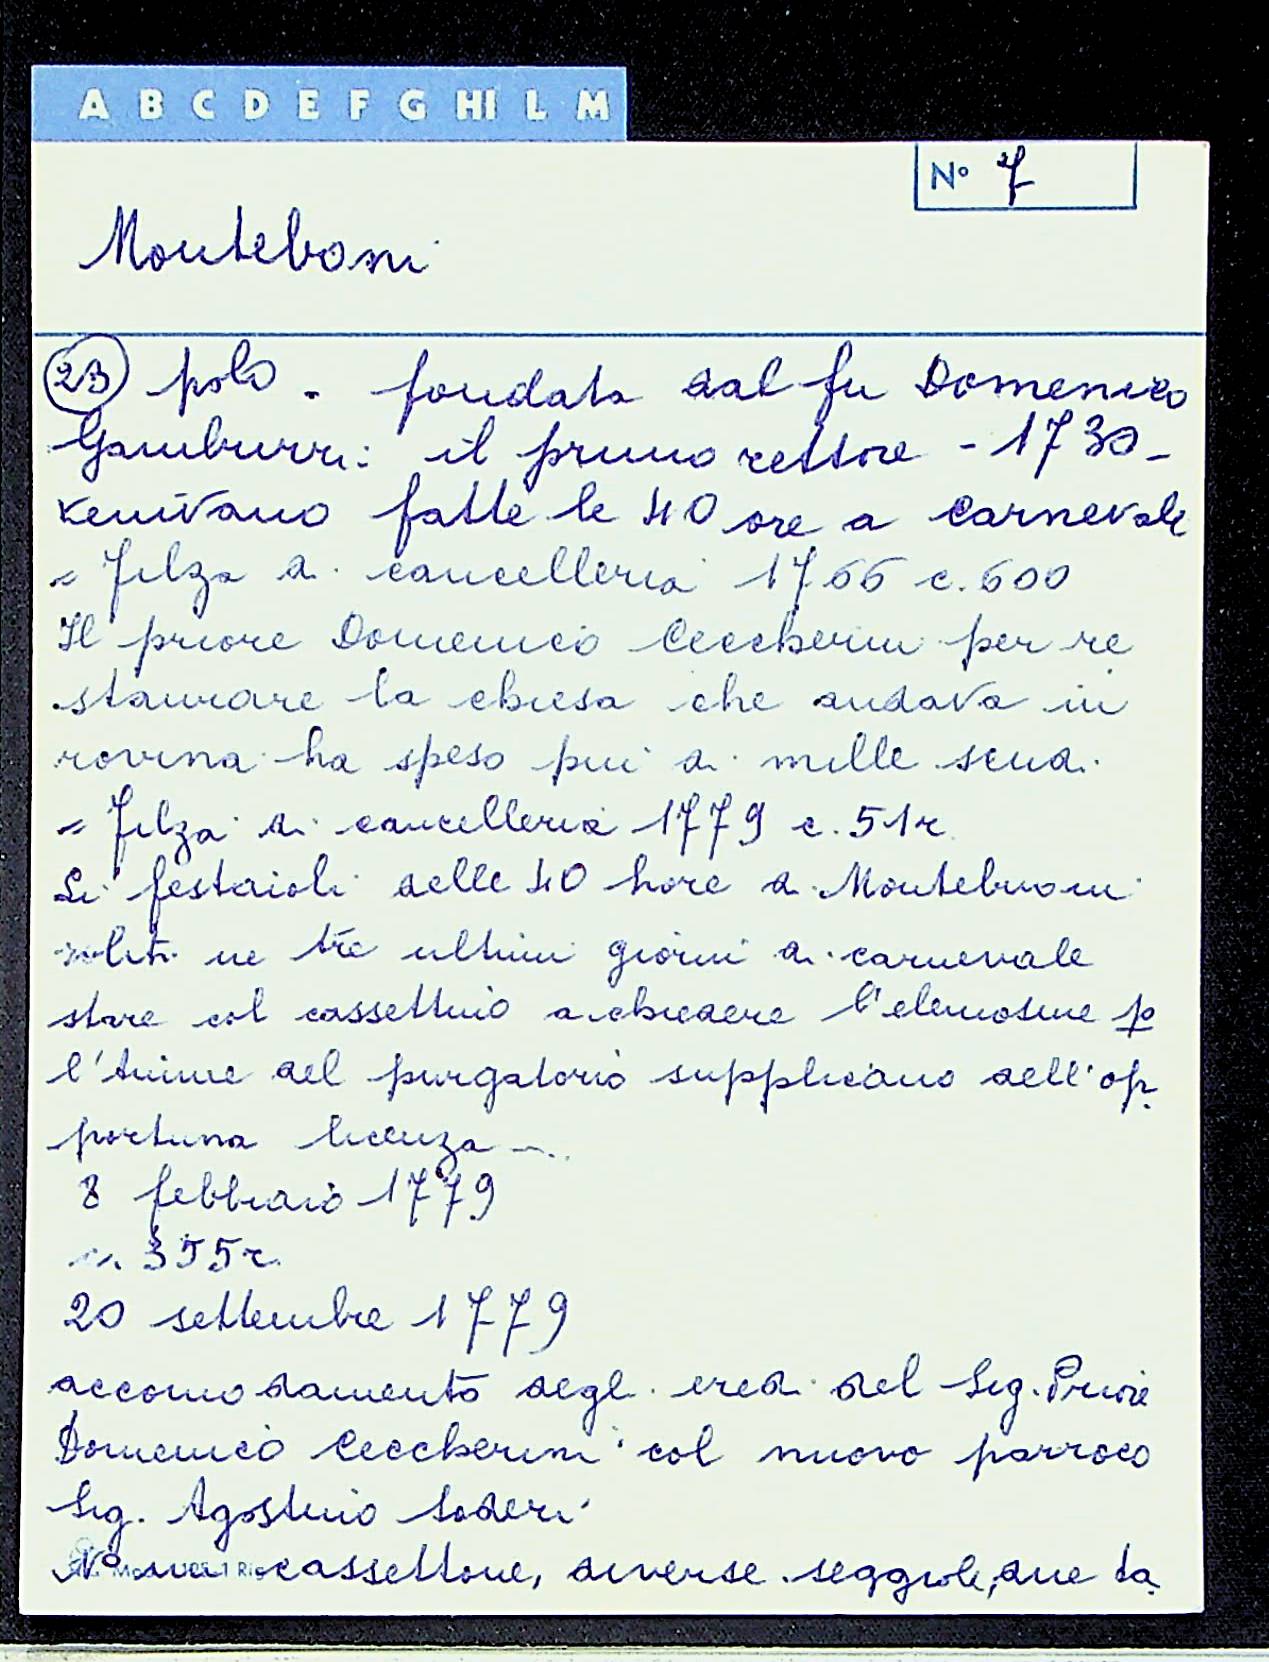 A B C D E F G HI L M
N° 7
Monteboni
23 polo. fondata dal fu Domenico
Gamburri: il primo rettore - 1730 -
venivano fatte le 40 ore a carnevale
= Filza di cancelleria 1766 c. 600
Il priore Domenico Ceccherini per re
staurare la chiesa che andava in
rovina ha speso più di mille scudi.
= Filza di cancelleria 1779 c. 51r
Li festaioli delle 40 hore di Montebuoni
soliti ne tre ultimi giorni di carnevale
stare col cassettino a chiedere l'elemosine p
l'Anime del purgatorio supplicano dell'op
portuna licenza ...
8 febbraio 1779
c. 355r
20 settembre 1779
accomodamento degl. eredi del Sig. Priore
Domenico Ceccherini col nuovo parroco
Sig. Agostino Soderi
N° un cassettone, diverse seggiole, due ta